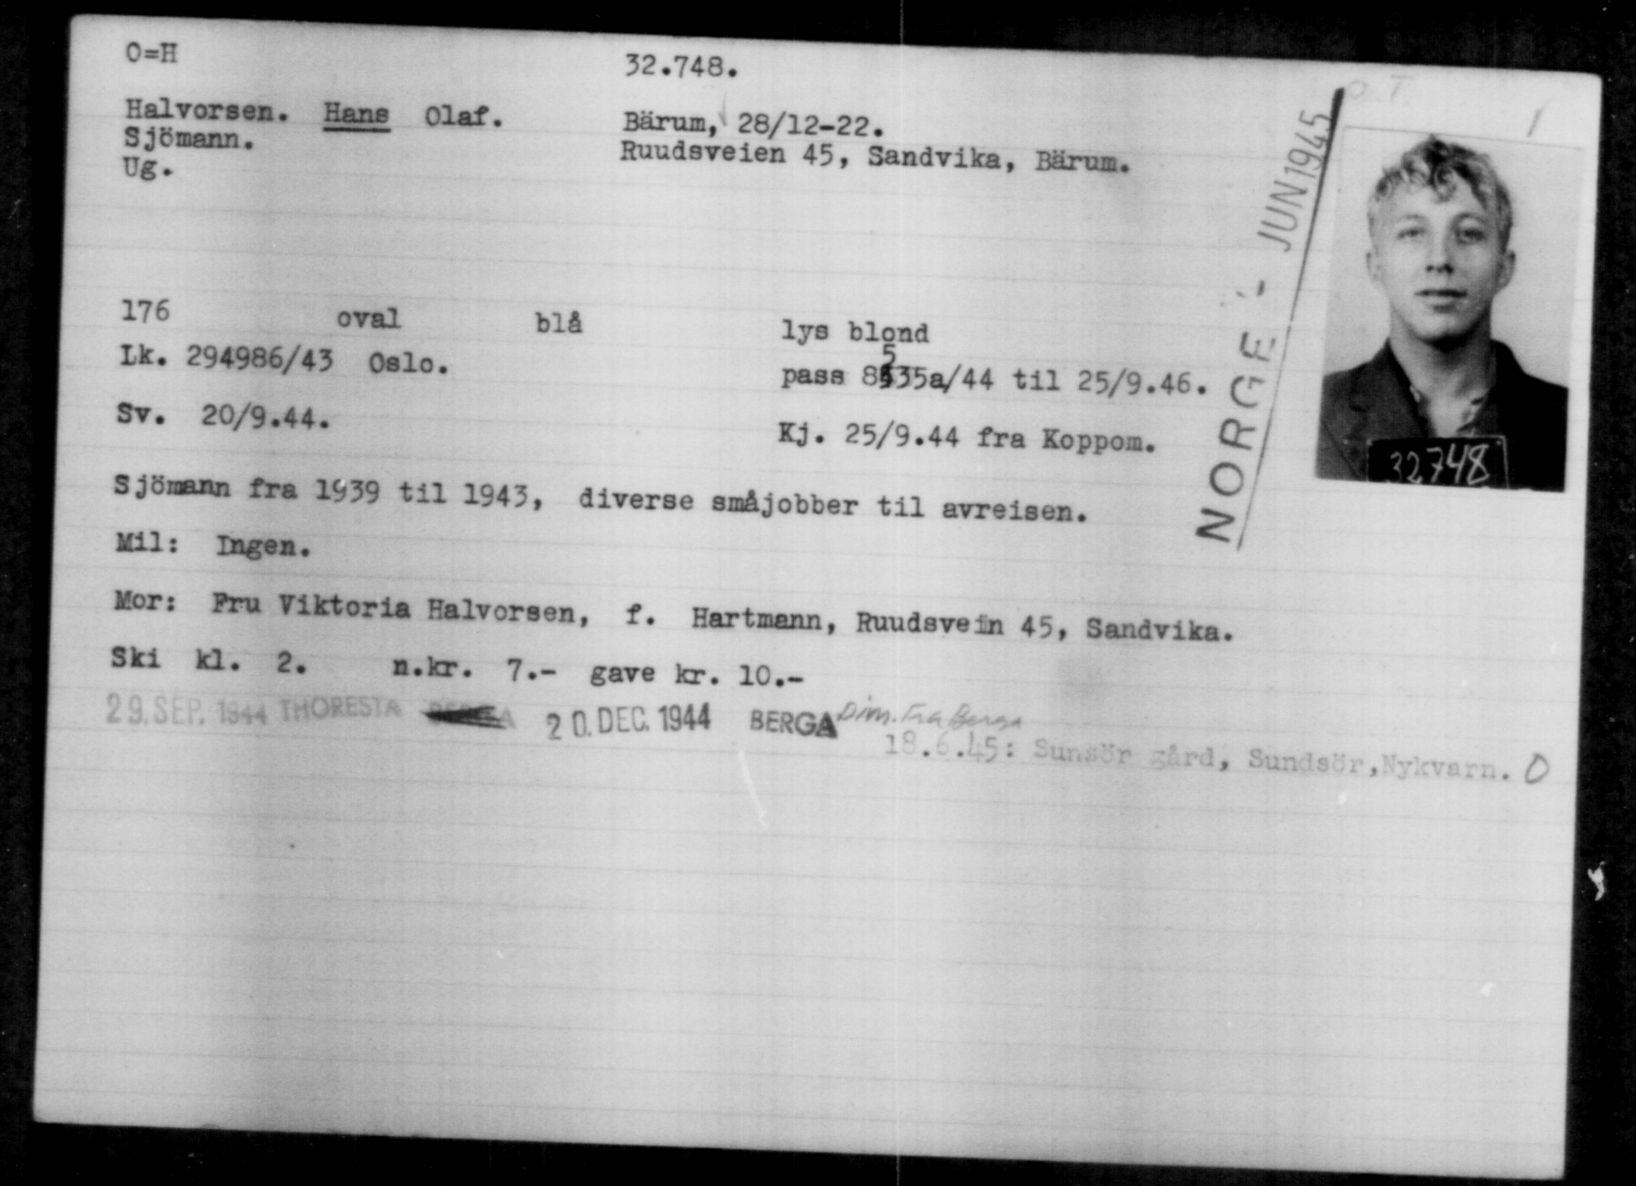 O=H 32.748.
Halvorsen. Hans Olaf. Bärum, 28/12-22.
Sjömann. Ruudsveien 45, Sandvika, Bärum.
Ug.
NORGE - JUN 1945
176 oval blå lys blond
Lk. 294986/43 Oslo. pass 8535a/44 til 25/9.46.
Sv. 20/9.44. Kj. 25/9.44 fra Koppom.
32748
Sjömann fra 1939 til 1943, diverse småjobber til avreisen.
Mil: Ingen.
Mor: Fru Viktoria Halvorsen, f. Hartmann, Ruudsvein 45, Sandvika.
Ski kl. 2. n.kr. 7.- gave kr. 10.-
29. SEP. 1944 THORESTA 20. DEC. 1944 BERGA Dim. Fra Berga
18.6.45: Sunsör gård, Sundsör, Nykvarn. O